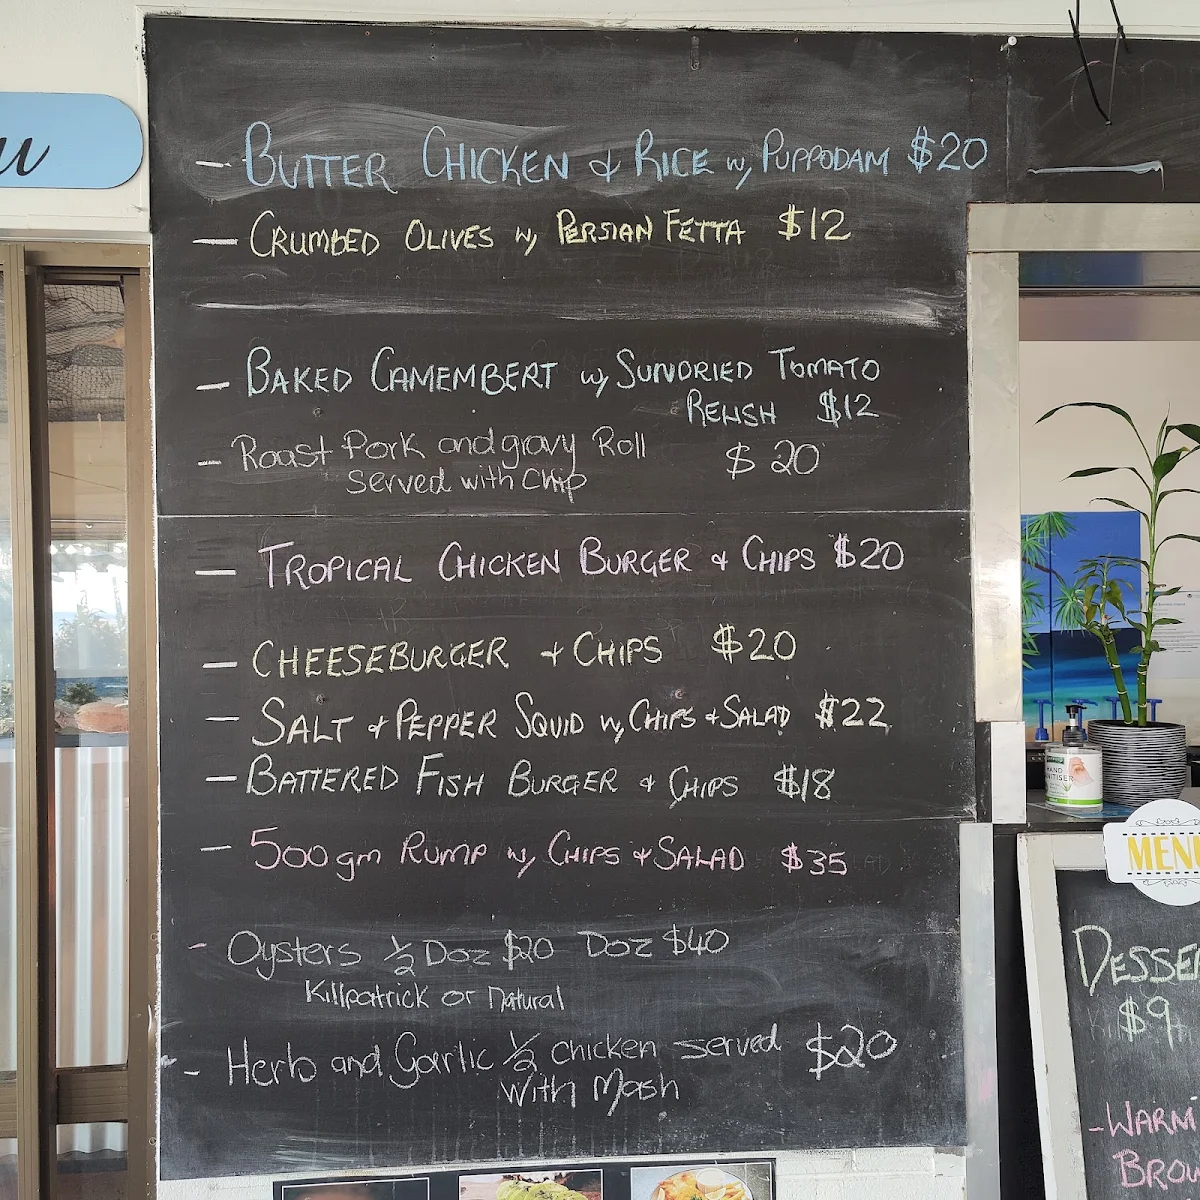 u
- BUTTER CHICKEN & RICE w/ PUPPODAM $20
- CRUMBED OLIVES w/ PERSIAN FETTA $12
- BAKED CAMEMBERT w/ SUNDRIED TOMATO
RELISH $12
- Roast Pork and gravy Roll $20
served with chip
- TROPICAL CHICKEN BURGER & CHIPS $20
- CHEESEBURGER & CHIPS $20
- SALT & PEPPER SQUID w/ CHIPS & SALAD $22
- BATTERED FISH BURGER & CHIPS $18
- 500gm RUMP w/ CHIPS & SALAD $35
- Oysters 1/2 Doz $20 Doz $40
Killpatrick or natural
- Herb and Garlic 1/2 chicken served $20
with Mash
HAND
MEN
DESSE
$9
- WARM
BROW